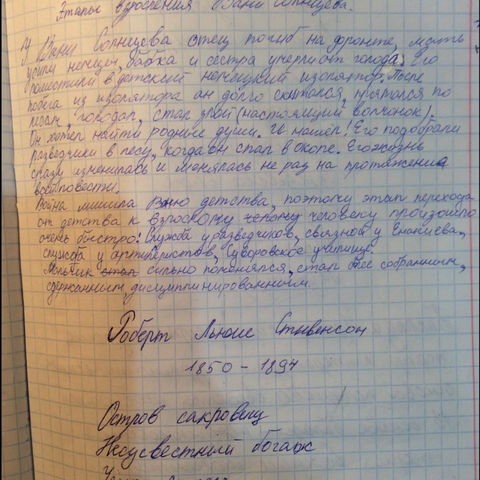 Этапы взросления Вани Солнцева.
У Вани Солнцева отец погиб на фронте, мать
убили немцы, бабка и сестра умерли от голода. Его
поместили в детский немецкий изолятор. После
побега из изолятора он долго скитался, прятался по
лесам, голодал, стал злой (настоящий волчонок).
Он хотел найти родные души. И нашел! Его подобрали
разведчики в лесу, когда он спал в окопе. Его жизнь
сразу изменилась и менялась не раз на протяжении
всей повести.
Война лишила Ваню детства, поэтому этап перехода
от детства к взрослому человеку произошло
очень быстро: Служба у разведчиков, связной у Енакиева,
служба у артиллеристов, Суворовское училище.
Мальчик стал сильно поменялся, стал более собранным,
сдержанным дисциплинированным.
Роберт Льюис Стивенсон
1850 - 1894
Остров сакровищ